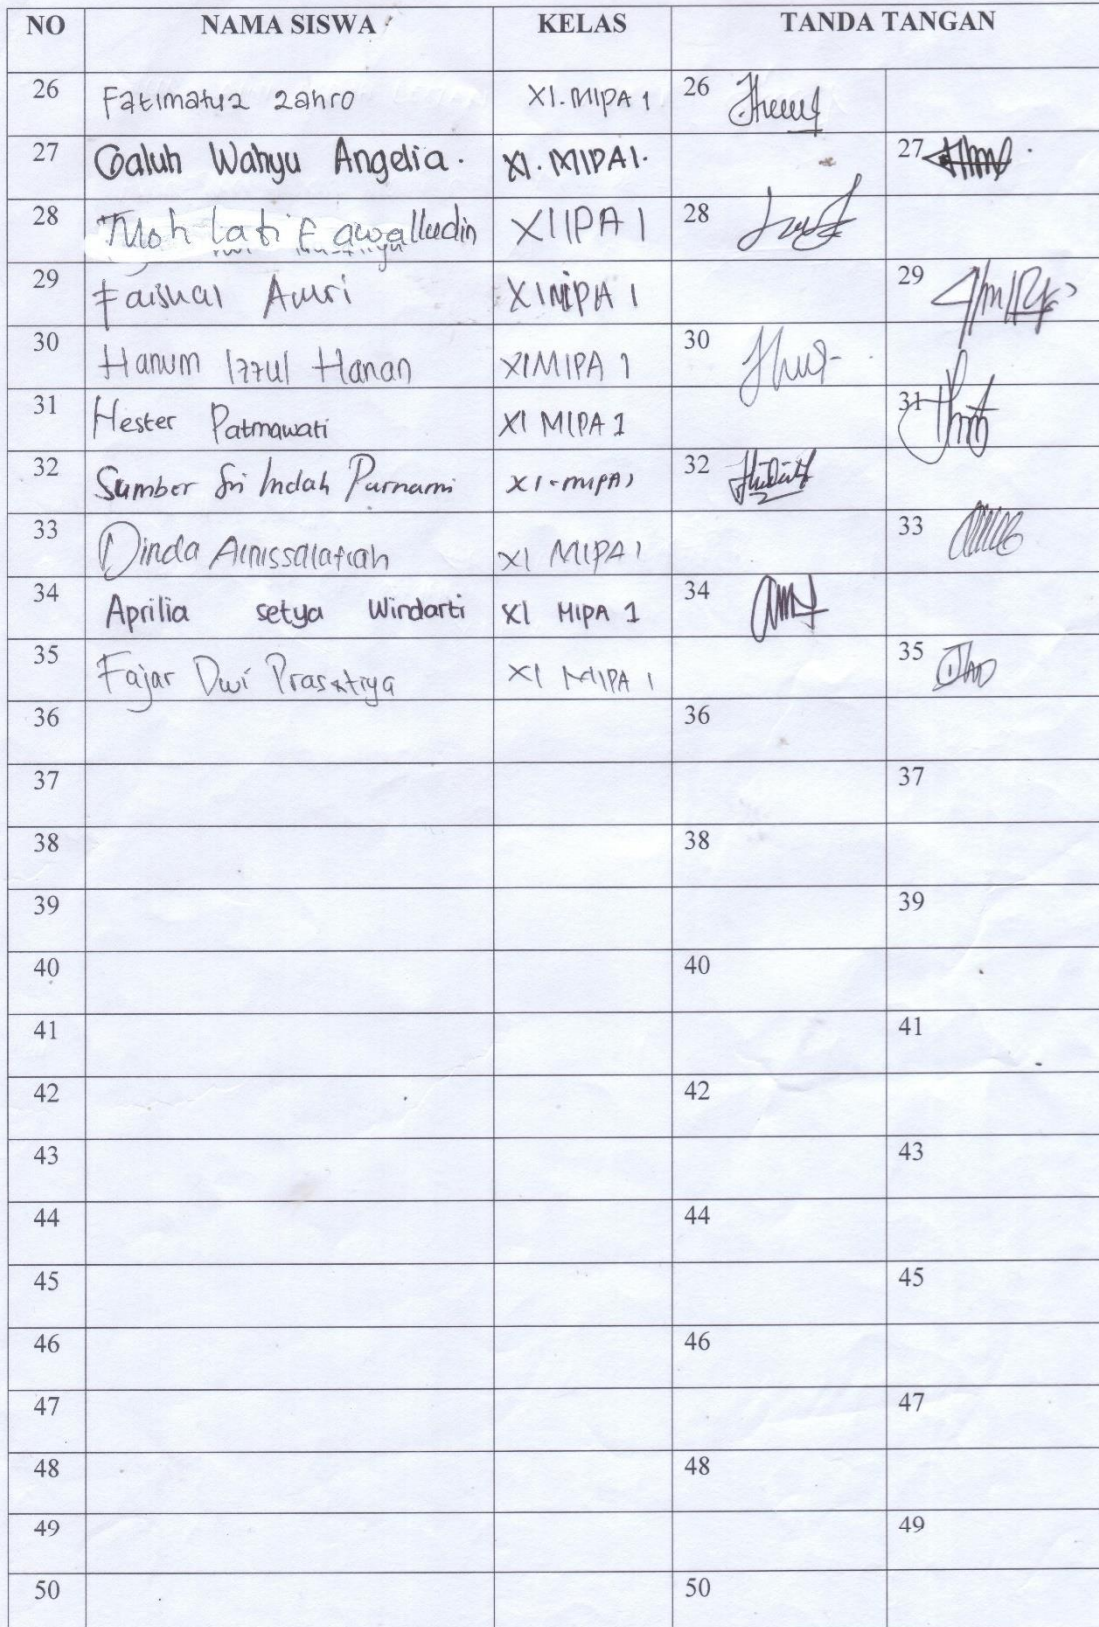 NO NAMA SISWA KELAS TANDA TANGAN
26 Fatimatuz Zahro XI. MIPA 1 26
27 Galuh Wahyu Angelia. XI. MIPA1. 27
28 Moh Latif awalludin XI IPA 1 28
29 Faisual Amri XI MIPA 1 29
30 Hanum Izzul Hanan XI MIPA 1 30
31 Hester Patmawati XI MIPA 1 31
32 Sumber Sri Indah Purnami XI-MIPA1 32
33 Dinda Ainissalafiah XI MIPA 1 33
34 Aprilia setya Windarti XI MIPA 1 34
35 Fajar Dwi Prasetiya XI MIPA 1 35
36 36
37 37
38 38
39 39
40 40
41 41
42 42
43 43
44 44
45 45
46 46
47 47
48 48
49 49
50 50